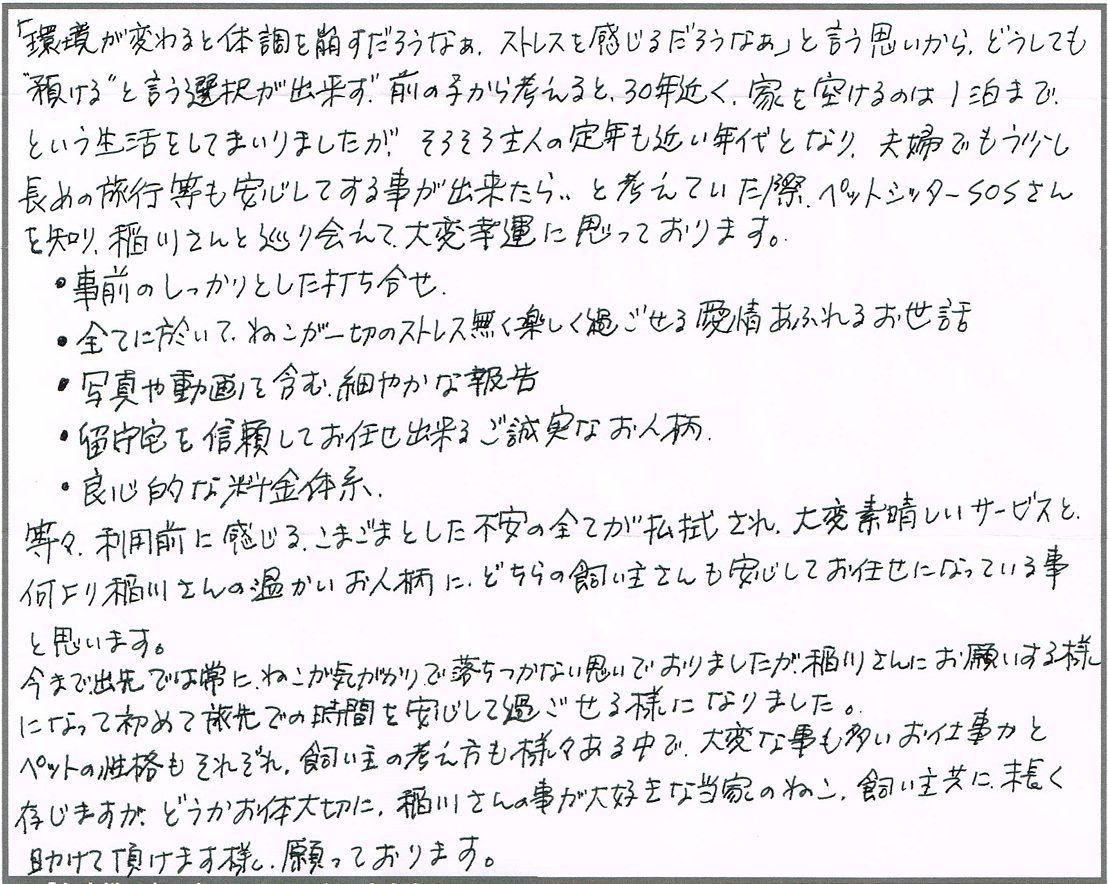 「環境が変わると体調を崩すだろうなぁ、ストレスを感じるだろうなぁ」と言う思いから、どうしても
"預ける"と言う選択が出来ず、前の子から考えると、30年近く、家を空けるのは1泊まで、
という生活をしてまいりましたが、そろそろ主人の定年も近い年代となり、夫婦でもう少し
長めの旅行等も安心してする事が出来たら‥と考えていた際、ペットシッターSOSさん
を知り、稲川さんと巡り会えて、大変幸運に思っております。
・事前のしっかりとした打ち合せ、
・全てに於いて、ねこが一切のストレス無く楽しく過ごせる愛情あふれるお世話
・写真や動画を含む、細やかな報告
・留守宅を信頼してお任せ出来るご誠実なお人柄、
・良心的な料金体系、
等々、利用前に感じる、こまごまとした不安の全てが払拭され、大変素晴しいサービスと、
何より稲川さんの温かいお人柄に、どちらの飼い主さんも安心してお任せになっている事
と思います。
今まで出先では常に、ねこが気がかりで落ちつかない思いでおりましたが、稲川さんにお願いする様
になって初めて旅先での時間を安心して過ごせる様になりました。
ペットの性格もそれぞれ、飼い主の考え方も様々ある中で、大変な事も多いお仕事かと
存じますが、どうかお体大切に、稲川さんの事が大好きな当家のねこ、飼い主共に、末長く
助けて頂けます様に、願っております。